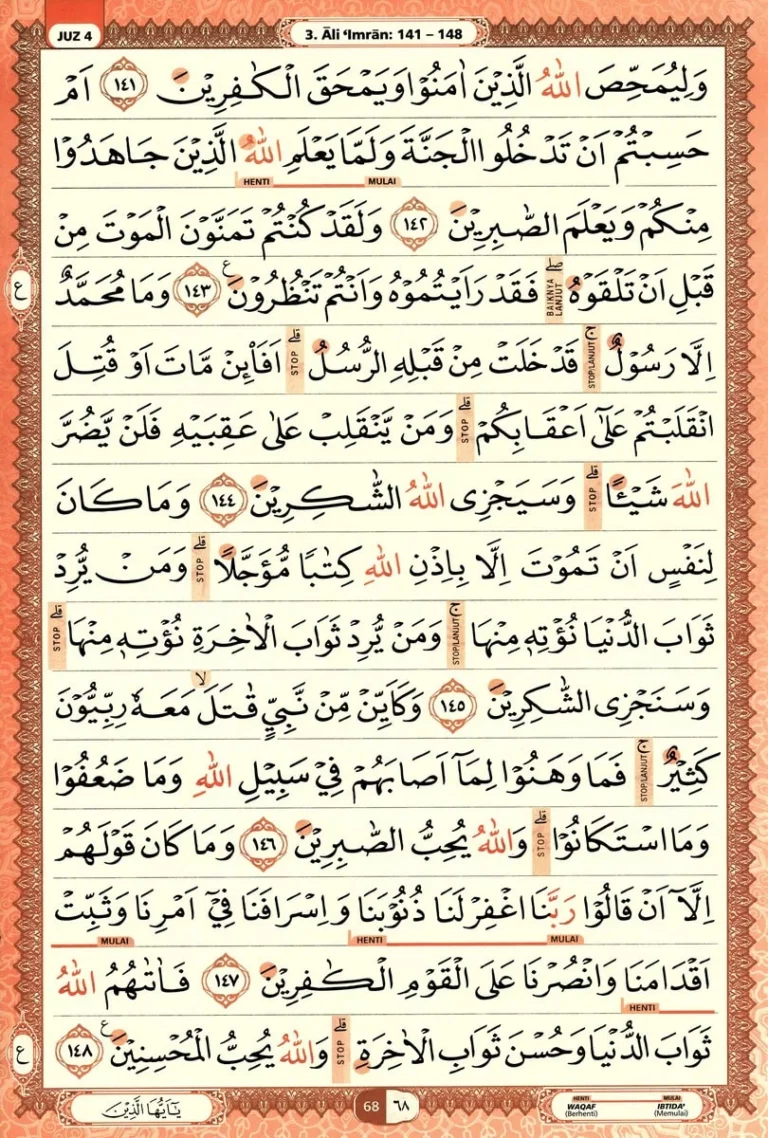 JUZ 4
3. Āli ‘Imrān: 141 – 148
وَلِيُمَحِّصَ اللّٰهُ الَّذِيْنَ اٰمَنُوْا وَيَمْحَقَ الْكٰفِرِيْنَ ١٤١ اَمْ
حَسِبْتُمْ اَنْ تَدْخُلُوا الْجَنَّةَ وَلَمَّا يَعْلَمِ اللّٰهُ الَّذِيْنَ جَاهَدُوْا
HENTI MULAI
مِنْكُمْ وَيَعْلَمَ الصّٰبِرِيْنَ ١٤٢ وَلَقَدْ كُنْتُمْ تَمَنَّوْنَ الْمَوْتَ مِنْ
قَبْلِ اَنْ تَلْقَوْهُۖ BAIKNYA LANJUT فَقَدْ رَاَيْتُمُوْهُ وَاَنْتُمْ تَنْظُرُوْنَ ع ١٤٣ وَمَا مُحَمَّدٌ
ع
اِلَّا رَسُوْلٌۚ STOP/LANJUT قَدْ خَلَتْ مِنْ قَبْلِهِ الرُّسُلُۗ STOP اَفَا۟ىِٕنْ مَّاتَ اَوْ قُتِلَ
انْقَلَبْتُمْ عَلٰٓى اَعْقَابِكُمْۗ STOP وَمَنْ يَّنْقَلِبْ عَلٰى عَقِبَيْهِ فَلَنْ يَّضُرَّ
اللّٰهَ شَيْـًٔاۗ STOP وَسَيَجْزِى اللّٰهُ الشّٰكِرِيْنَ ١٤٤ وَمَا كَانَ
لِنَفْسٍ اَنْ تَمُوْتَ اِلَّا بِاِذْنِ اللّٰهِ كِتٰبًا مُّؤَجَّلًاۗ STOP وَمَنْ يُّرِدْ
ثَوَابَ الدُّنْيَا نُؤْتِهٖ مِنْهَاۚ STOP/LANJUT وَمَنْ يُّرِدْ ثَوَابَ الْاٰخِرَةِ نُؤْتِهٖ مِنْهَاۗ STOP
وَسَنَجْزِى الشّٰكِرِيْنَ ١٤٥ وَكَاَيِّنْ مِّنْ نَّبِيٍّ قٰتَلَۙ مَعَهٗ رِبِّيُّوْنَ
كَثِيْرٌۚ STOP/LANJUT فَمَا وَهَنُوْا لِمَآ اَصَابَهُمْ فِيْ سَبِيْلِ اللّٰهِ وَمَا ضَعُفُوْا
وَمَا اسْتَكَانُوْاۗ STOP وَاللّٰهُ يُحِبُّ الصّٰبِرِيْنَ ١٤٦ وَمَا كَانَ قَوْلَهُمْ
اِلَّآ اَنْ قَالُوْا رَبَّنَا اغْفِرْ لَنَا ذُنُوْبَنَا وَاِسْرَافَنَا فِيْٓ اَمْرِنَا وَثَبِّتْ
MULAI HENTI MULAI
اَقْدَامَنَا وَانْصُرْنَا عَلَى الْقَوْمِ الْكٰفِرِيْنَ ١٤٧ فَاٰتٰىهُمُ اللّٰهُ
HENTI
ثَوَابَ الدُّنْيَا وَحُسْنَ ثَوَابِ الْاٰخِرَةِۗ STOP وَاللّٰهُ يُحِبُّ الْمُحْسِنِيْنَ ع ١٤٨
ع
يٰٓاَيُّهَا الَّذِيْنَ
68 ٦٨
HENTI MULAI
WAQAF IBTIDA'
(Berhenti) (Memulai)